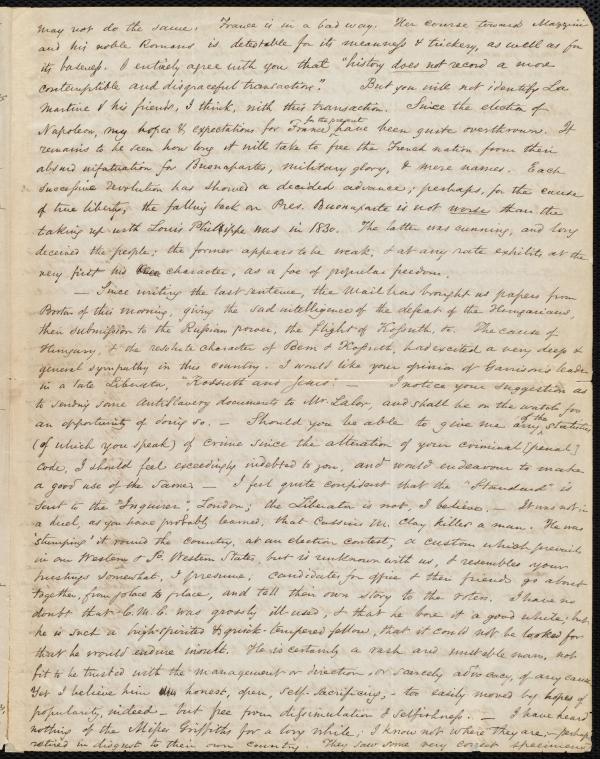 may not do the same. France is in a bad way. Her course toward Mazzini
and his noble Romans is detestable for its meanness & trickery, as well as for
its baseness. I entirely agree with you that "history does not record a more
contemptible and disgraceful transaction." But you will not identify La
Martine & his friends, I think, with this transaction. Since the election of
Napoleon, my hopes & expectations for France for the present have been quite overthrown. It
remains to be seen how long it will take to free the French nation from their
absurd infatuation for Buonapartes, military glory, & mere names. Each
successive revolution has showed a decided advance; perhaps, for the cause
of true liberty, the falling back on Pres. Buonaparte is not worse than the
taking up with Louis Philippe was in 1830. The latter was cunning, and long
deceived the people; the former appears to be weak, & at any rate exhibits at the
very first his character, as a foe of popular freedom.
— Since writing the last sentence, the Mail has brought us papers from
Boston of this morning, giving the sad intelligence of the defeat of the Hungarians,
their submission to the Russian power, the flight of Kossuth, &c. The cause of
Hungary, & the resolute character of Bem & Kossuth, had excited a very deep &
general sympathy in this country. I would like your opinion of Garrison's leader
in a late Liberator, "Kossuth and Jesus". — I notice your suggestion as
to sending some AntiSlavery documents to Mr. Lalor, and shall be on the watch for
an opportunity of doing so. — Should you be able to give me any of the statistics
(of which you speak) of crime since the alteration of your criminal [penal]
code, I should feel exceedingly indebted to you, and would endeavour to make
a good use of the same. — I feel quite confident that the "Standard" is
sent to the "Inquirer", London; the Liberator is not, I believe. — It was not in
a duel, as you have probably learned, that Cassius M. Clay killed a man. He was
'stumping' it round the country, at an election contest, a custom which prevails
in our Western & So. Western States, but is unknown with us, & resembles your
hustings somewhat, I presume; candidates for office & their friends go about
together, from place to place, and tell their own story to the voters. I have no
doubt that C. M. C. was grossly ill used, & that he bore it a good while; but
he is such a high-spirited & quick-tempered fellow, that it could not be looked for
that he would endure insult. He is certainly a rash and unstable man, not
fit to be trusted with the management or direction, or scarcely advocacy, of any cause.
Yet I believe him honest, open, self-sacrificing, — too easily moved by hopes of
popularity, indeed — but free from dissimulation & selfishness. — I have heard
nothing of the Misses Griffiths for a long while; I know not where they are, — perhaps
retired in disgust to their own country. They saw some very correct specimens